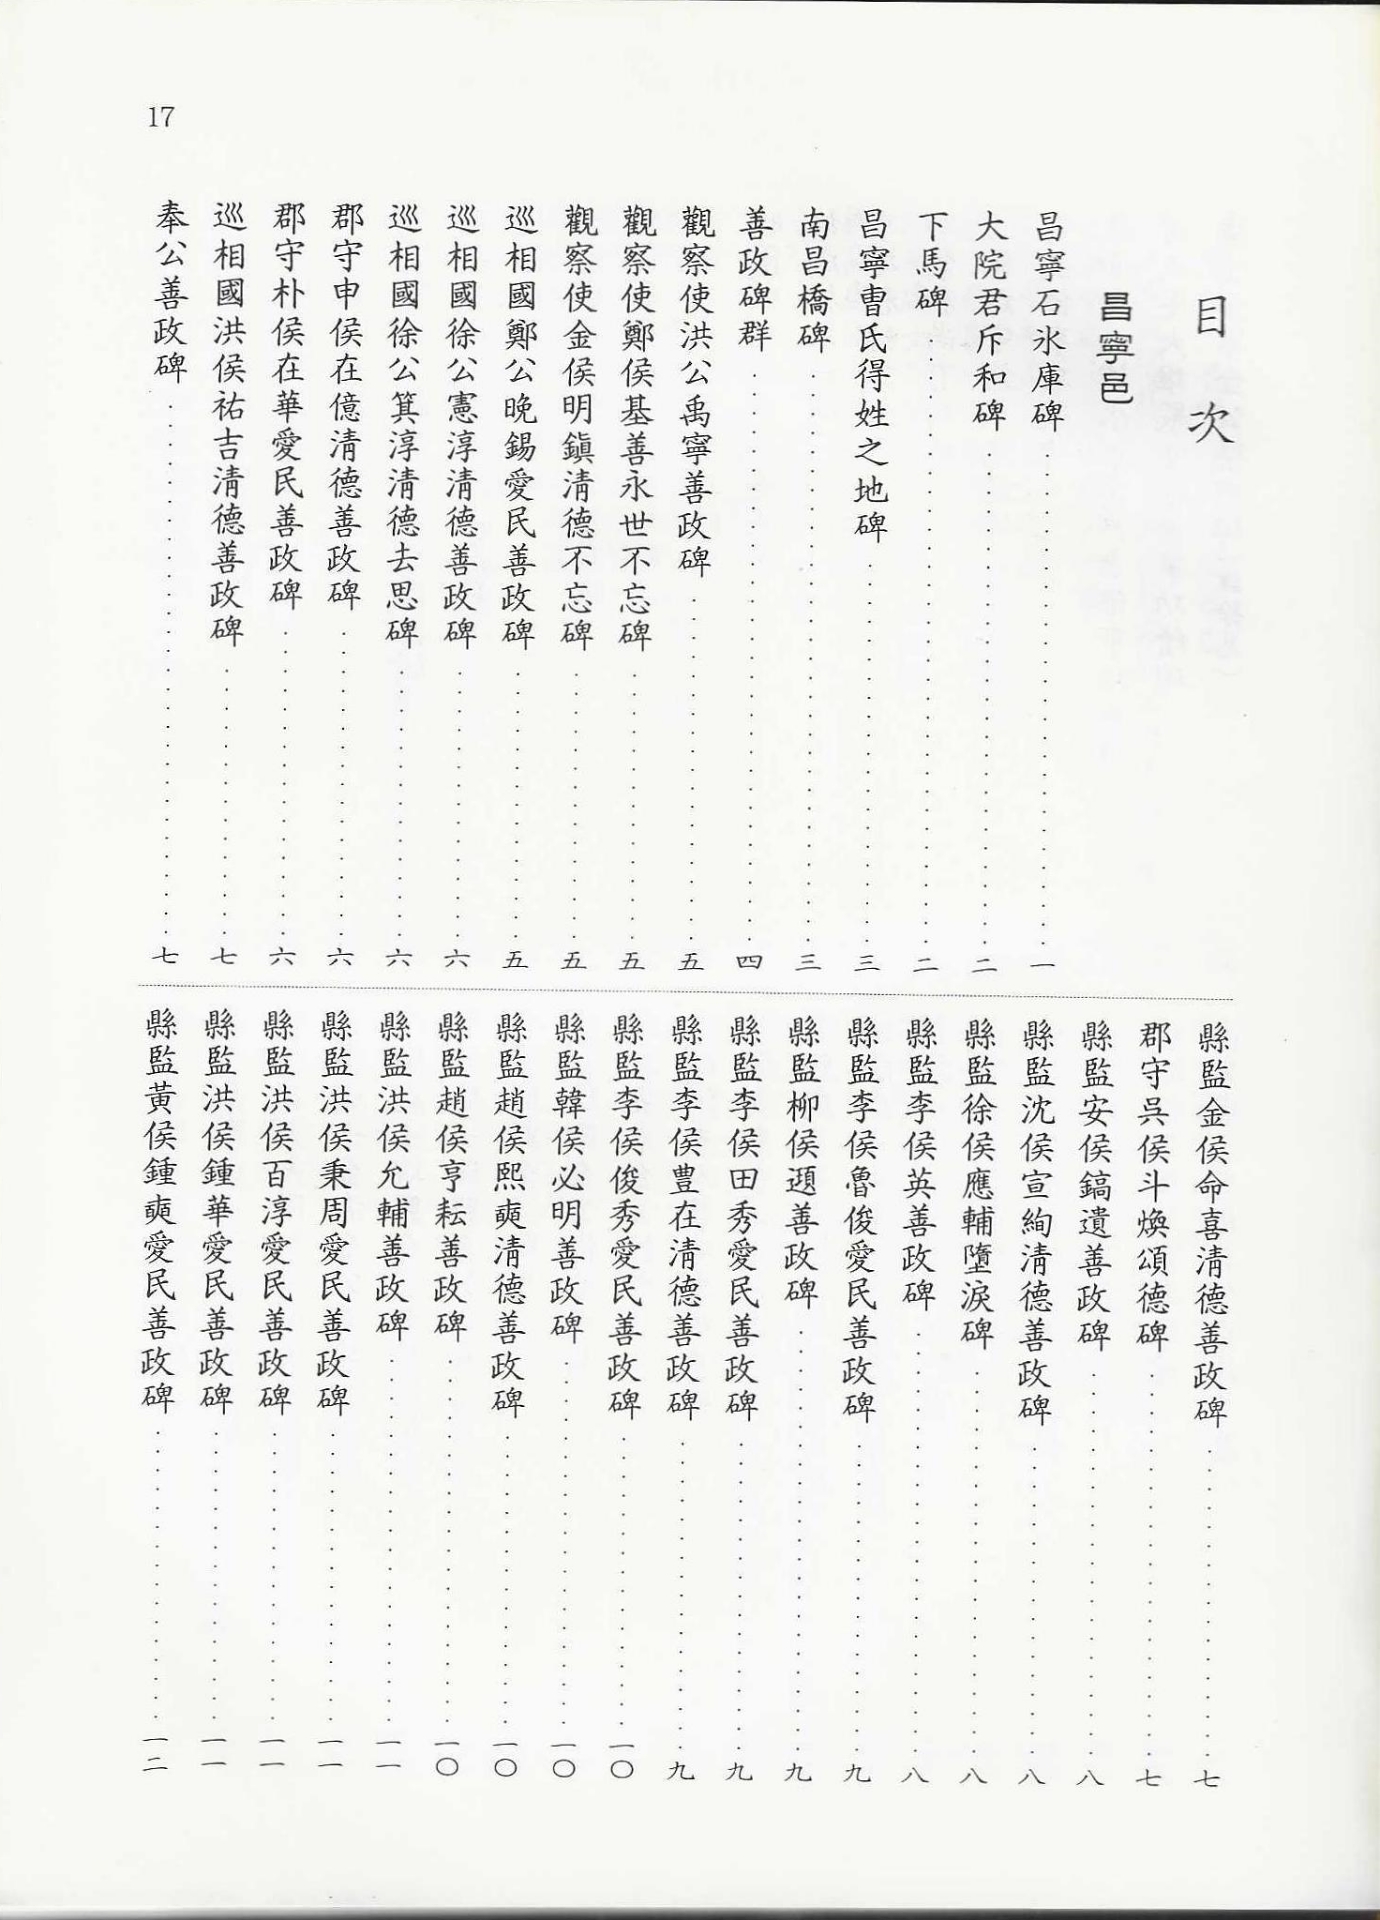 17
目次
昌寧邑
昌寧石氷庫碑 一
大院君斥和碑 二
下馬碑 二
昌寧曺氏得姓之地碑 三
南昌橋碑 三
善政碑群 四
觀察使洪公禹寧善政碑 五
觀察使鄭侯基善永世不忘碑 五
觀察使金侯明鎭淸德不忘碑 五
巡相國鄭公晩錫愛民善政碑 五
巡相國徐公憲淳淸德善政碑 六
巡相國徐公箕淳淸德去思碑 六
郡守申侯在億淸德善政碑 六
郡守朴侯在華愛民善政碑 六
巡相國洪侯祐吉淸德善政碑 七
奉公善政碑 七
縣監金侯命喜淸德善政碑 七
郡守吳侯斗煥頌德碑 七
縣監安侯鎬遺善政碑 八
縣監沈侯宣絢淸德善政碑 八
縣監徐侯應輔墮淚碑 八
縣監李侯英善政碑 八
縣監李侯魯俊愛民善政碑 九
縣監柳侯逷善政碑 九
縣監李侯田秀愛民善政碑 九
縣監李侯豊在淸德善政碑 九
縣監李侯俊秀愛民善政碑 一〇
縣監韓侯必明善政碑 一〇
縣監趙侯熙奭淸德善政碑 一〇
縣監趙侯亨耘善政碑 一〇
縣監洪侯允輔善政碑 一一
縣監洪侯秉周愛民善政碑 一一
縣監洪侯百淳愛民善政碑 一一
縣監洪侯鍾華愛民善政碑 一一
縣監黃侯鍾奭愛民善政碑 一二